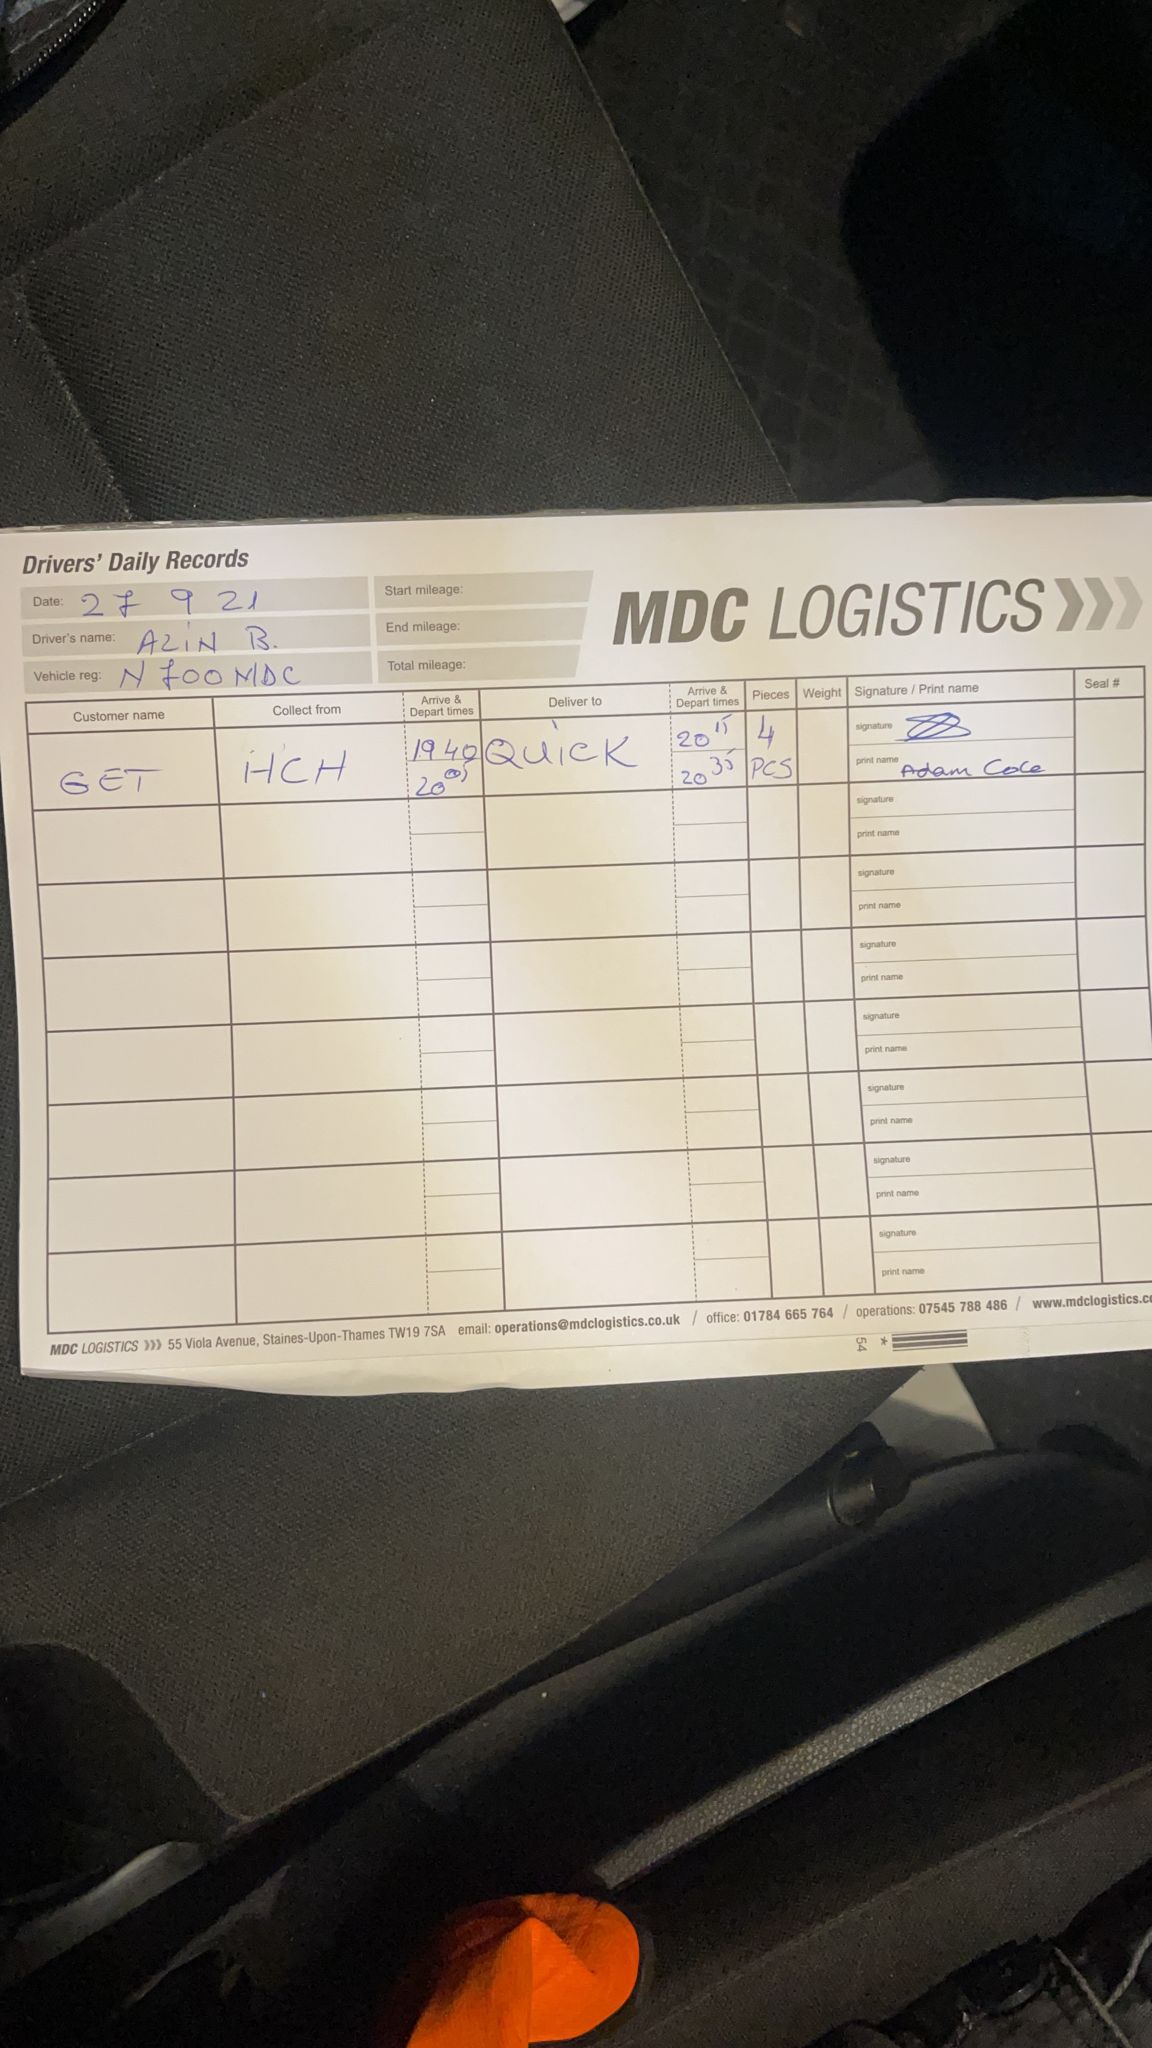 Drivers' Daily Records
MDC LOGISTICS
Date: 27 9 21
Driver's name: AZIN B.
Vehicle reg: N700MDC
Start mileage:
End mileage:
Total mileage:
Customer name Collect from Arrive & Depart times Deliver to Arrive & Depart times Pieces Weight Signature / Print name Seal #
GET HCH 19 40 QUICK 20 15 4 signature
20 05 20 35 PCS print name Adam Cole
signature
print name
signature
print name
signature
print name
signature
print name
signature
print name
signature
print name
signature
print name
MDC LOGISTICS 55 Viola Avenue, Staines-Upon-Thames TW19 7SA email: operations@mdclogistics.co.uk / office: 01784 665 764 / operations: 07545 788 486 / www.mdclogistics.co
54 *